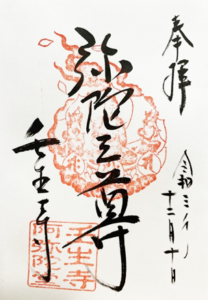 奉拝
令和三年
十二月十日
弥陀三尊
壬生寺
壬生寺
阿弥陀堂